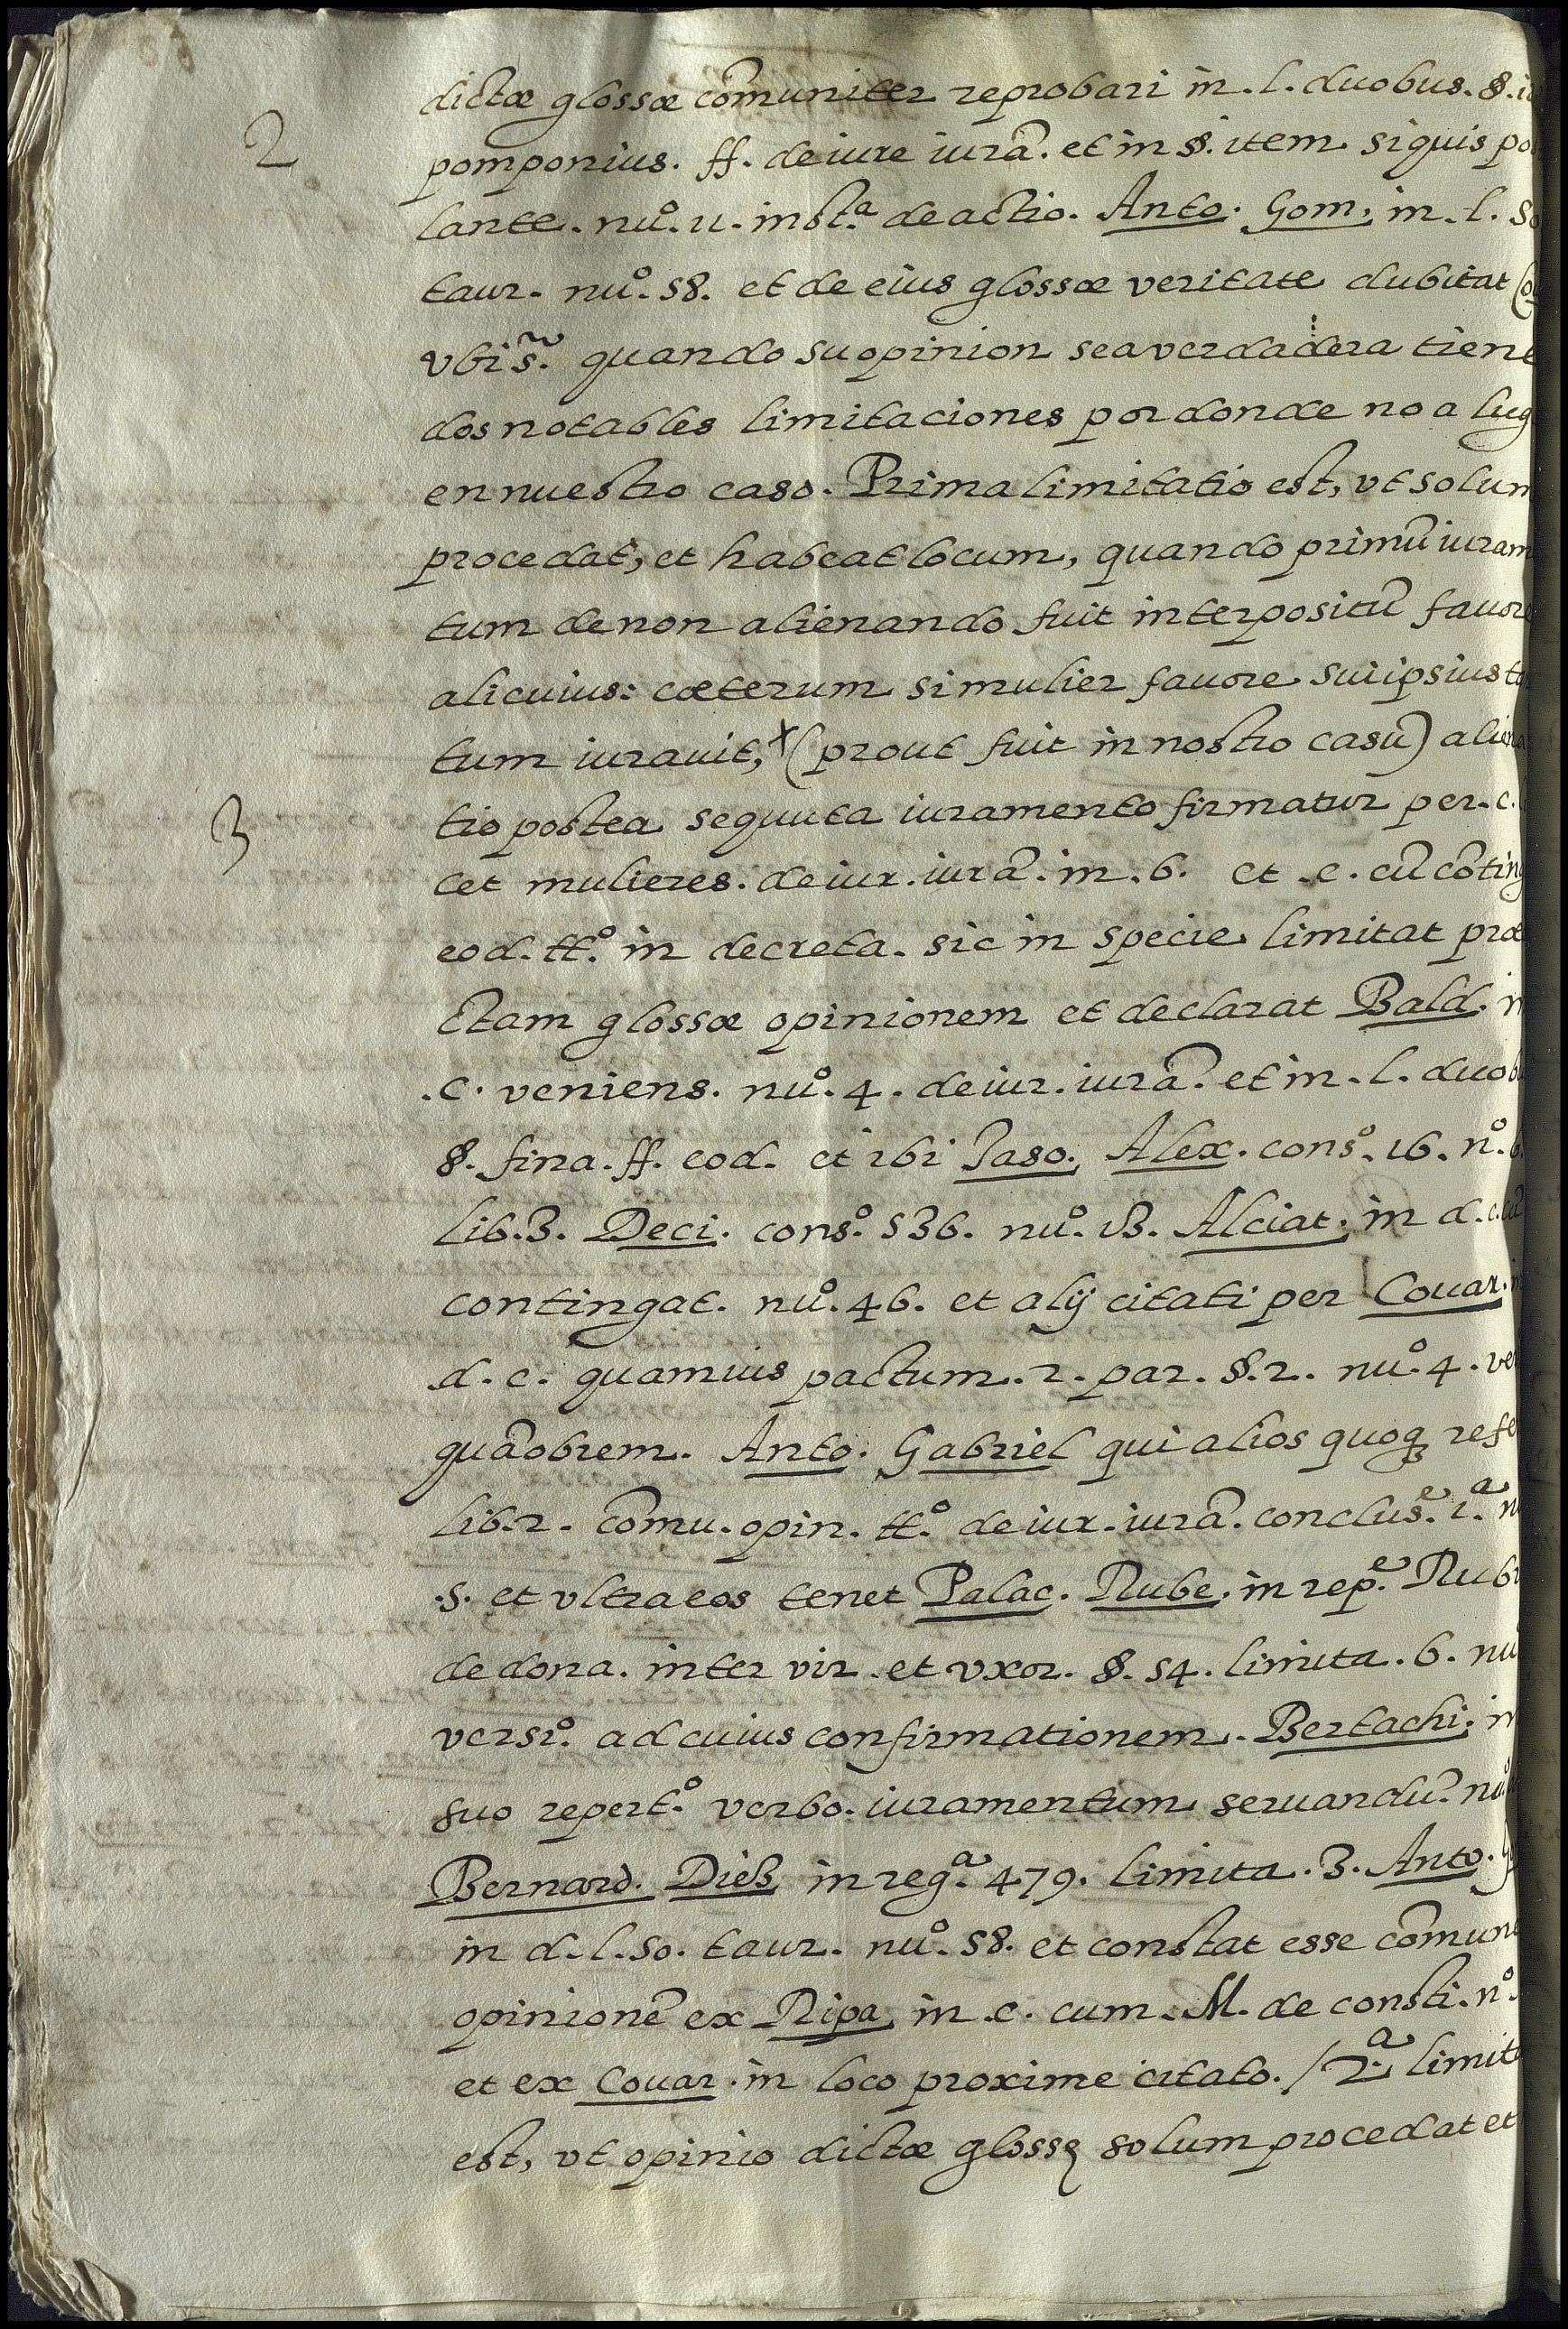 dictæ glossæ cõmuniter reprobari in. l. duobus. §. i
2
pomponius. ff. de iure iurã. et in §. item si quis po
lante. nuº. 11. instª de actio. Anto. Gom, in. l. so
taur. nuº. 58. et de eius glossæ veritate dubitat Co
vbi s̃. quando su opinion sea verdadera tiene
dos notables limitaciones por donde no a lug
en nuestro caso. Prima limitatio est, vt solum
procedat, et habeat locum, quando primũ iuram
tum de non alienando fuit interpositũ fauore
alicuius: cæterum si mulier fauore sui ipsius t
tum iurauit, x (prout fuit in nostro casu) aliena
3
tio postea sequuta iuramento firmatur per. c.
cet mulieres. de iur. iurã. in. 6. et. c. cũ cõting
eod. ttº. in decreta. sic in specie limitat præ
ctam glossæ opinionem et declarat Bald. in
.c. veniens. nuº. 4. de iur. iurã. et in. l. duob
§. fina. ff. eod. et ibi Jaso. Alex. consº. 16. nº. 6.
lib. 3. Deci. consº. 536. nuº. 13. Alciat. in d. c. cũ
contingat. nuº. 46. et alij citati per Couar. in
.d. c. quamuis pactum. 2. par. §. 2. nuº. 4. ver
quãobrem. Anto. Gabriel qui alios quoq refe
lib. 2. cõmu. opin. ttº. de iur. iurã. conclusᵉ. 1ª. n
.5. et vltra eos tenet Palac. Rube. in repᵉ. Rubr
de dona. inter vir. et vxor. §. 54. limita. 6. nu
versiº. ad cuius confirmationem. Bertachi, in
suo repertº. verbo. iuramentum seruandũ. nuº.
Bernard. Dieß in regª. 479. limita. 3. Anto. G
in d. l. 50. taur. nuº. 58. et constat esse cõmune
opinionẽ ex Ripa, in. c. cum. M. de consti. nº.
et ex Couar. in loco proxime citato. / 2.ª limita
est, vt opinio dictæ glossę solum procedat et